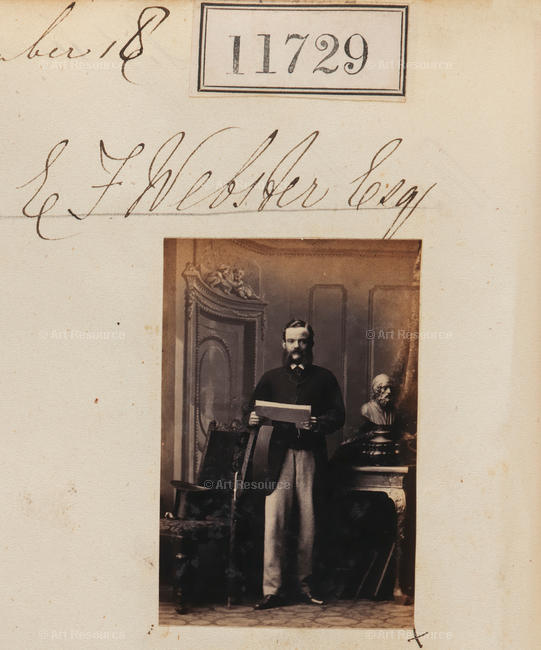 ber 18
11729
E F Webster Esq
© Art Resource
© Art Resource
© Art Resource
© Art Resource
© Art Resource
© Art Resource
© Art Resource